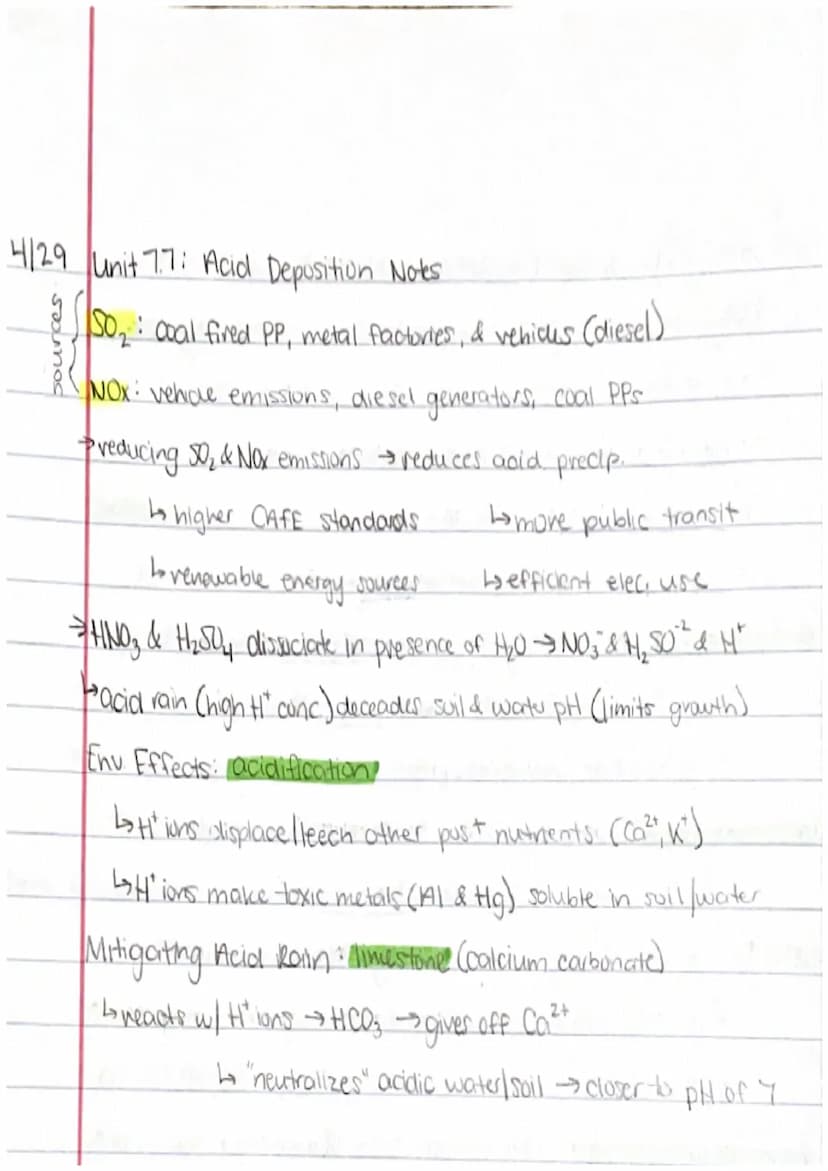 4/29 Unit 7.7: Acid Deposition Notes
sources
SO₂: coal fired PP, metal factories, & vehicles (diesel)
NOx: vehicle emissions, diesel generators, coal PPs
→reducing SO₂ & NOx emissions → reduces acid precip.
↳ higher CAFE standards ↳ more public transit
↳ renewable energy sources ↳ efficient elec. use
→ HNO₃ & H₂SO₄ dissociate in presence of H₂O → NO₃⁻ & H₂SO⁻² & H⁺
↳ acid rain (high H⁺ conc) deceades soil & water pH (limits growth)
Env Effects: acidification
↳ H⁺ ions displace/leech other pos+ nutrients (Ca²⁺, K⁺)
↳ H⁺ ions make toxic metals (Al & Hg) soluble in soil/water
Mitigating Acid Rain: limestone (calcium carbonate)
↳ reacts w/ H⁺ ions → HCO₃ → gives off Ca²⁺
↳ "neutralizes" acidic water/soil → closer to pH of 7